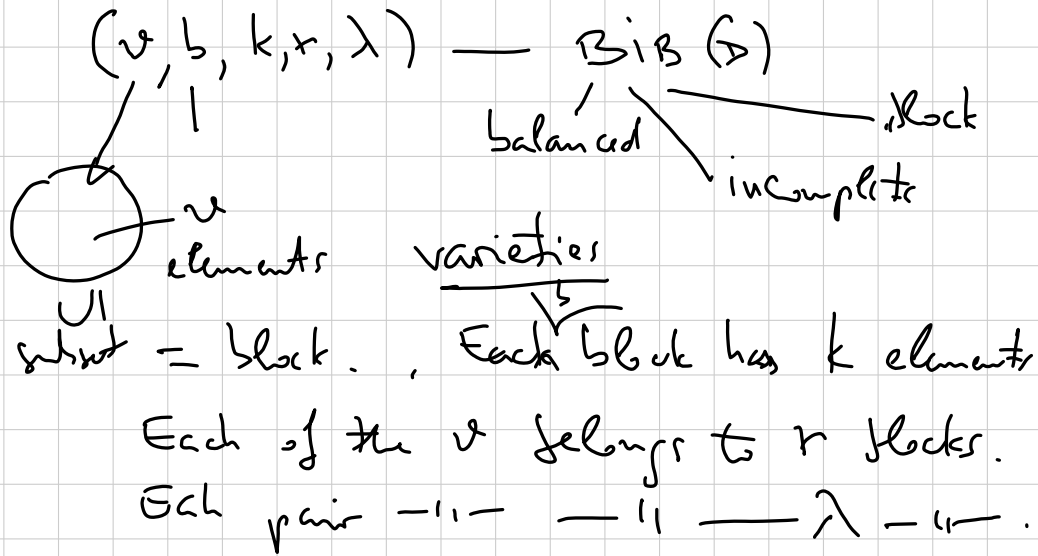 (v, b, k, r, λ) — BiB(D)
balanced
block
incomplete
v
elements
varieties
⊆
b
subset = block. Each block has k elements
Each of the v belongs to r blocks.
Each pair —"— —"— λ —"—.